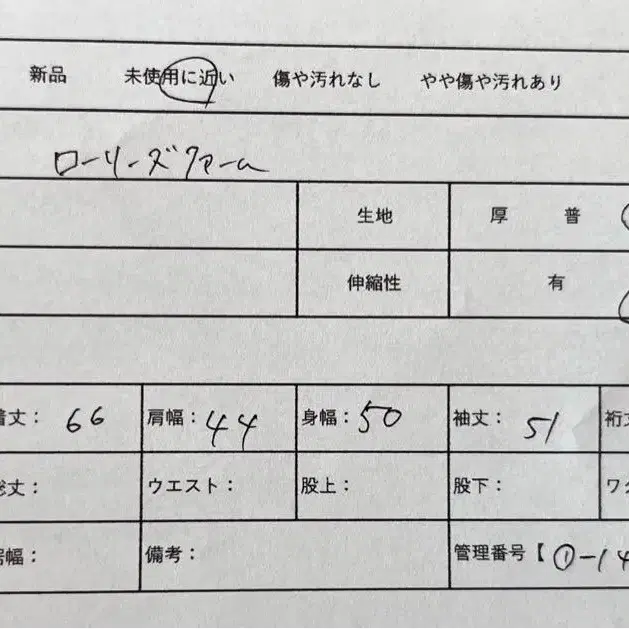 新品 未使用に近い 傷や汚れなし やや傷や汚れあり
ローリーズファーム
生地 厚 普
伸縮性 有
着丈: 66 肩幅: 44 身幅: 50 袖丈: 51 裄丈
総丈: ウエスト: 股上: 股下: ワタ
裾幅: 備考: 管理番号【 ①-14